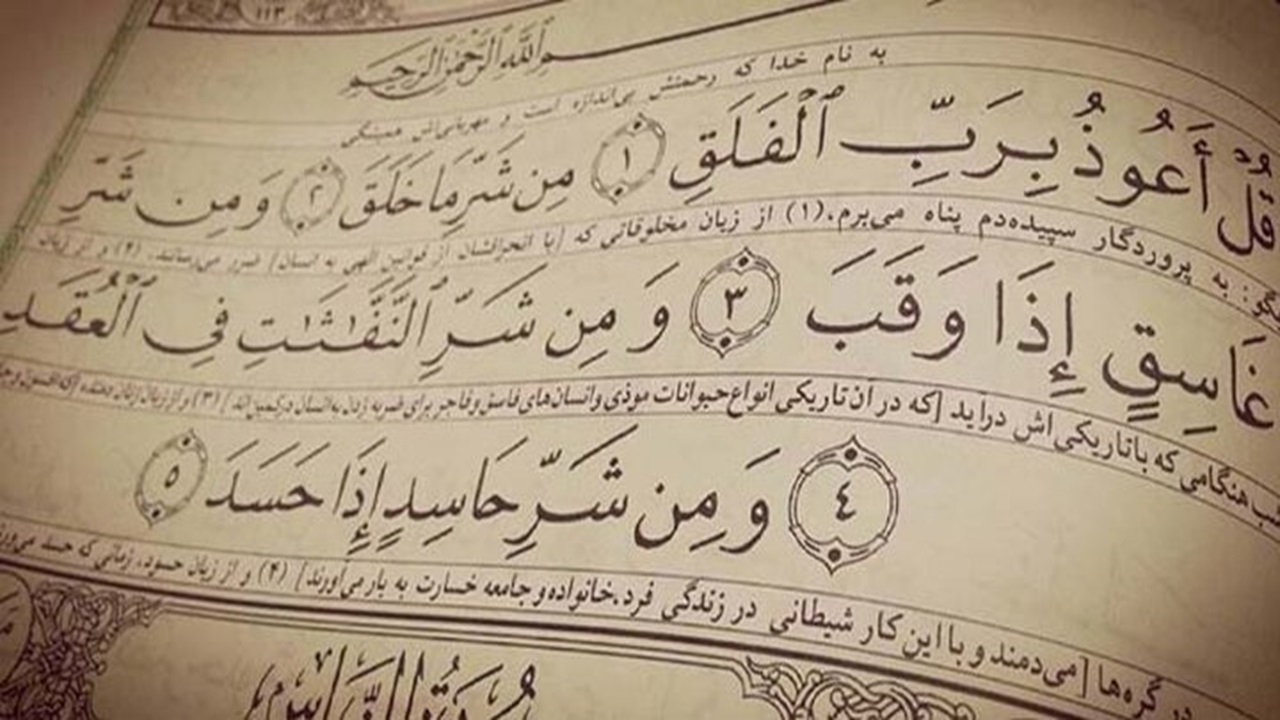 ١١٣
بِسْمِ ٱللَّهِ ٱلرَّحْمَٰنِ ٱلرَّحِيمِ
به نام خدا که رحمتش بی‌اندازه است و مهربانی‌اش همیشگی
قُلْ أَعُوذُ بِرَبِّ ٱلْفَلَقِ ١ مِن شَرِّ مَا خَلَقَ ٢ وَمِن شَرِّ
بگو: به پروردگار سپیده‌دم پناه می‌برم، (١) از زیان مخلوقاتی که [با انحرافشان از قوانین الهی به انسان] ضرر می‌رسانند، (٢) و از زیان
غَاسِقٍ إِذَا وَقَبَ ٣ وَمِن شَرِّ ٱلنَّفَّٰثَٰتِ فِى ٱلْعُقَدِ
شب هنگامی که با تاریکی‌اش درآید [که در آن تاریکی انواع حیوانات موذی و انسان‌های فاسق و فاجر برای ضربه زدن به انسان در کمین‌اند] (٣) و از زیان زنان دمنده [که افسون
٤ وَمِن شَرِّ حَاسِدٍ إِذَا حَسَدَ ٥
در گره‌ها [می‌دمند و با این کار شیطانی در زندگی فرد، خانواده و جامعه خسارت به بار می‌آورند] (۴) و از زیان حسود، زمانی که حسد می‌ورزد
سُورَةُ النَّاسِ